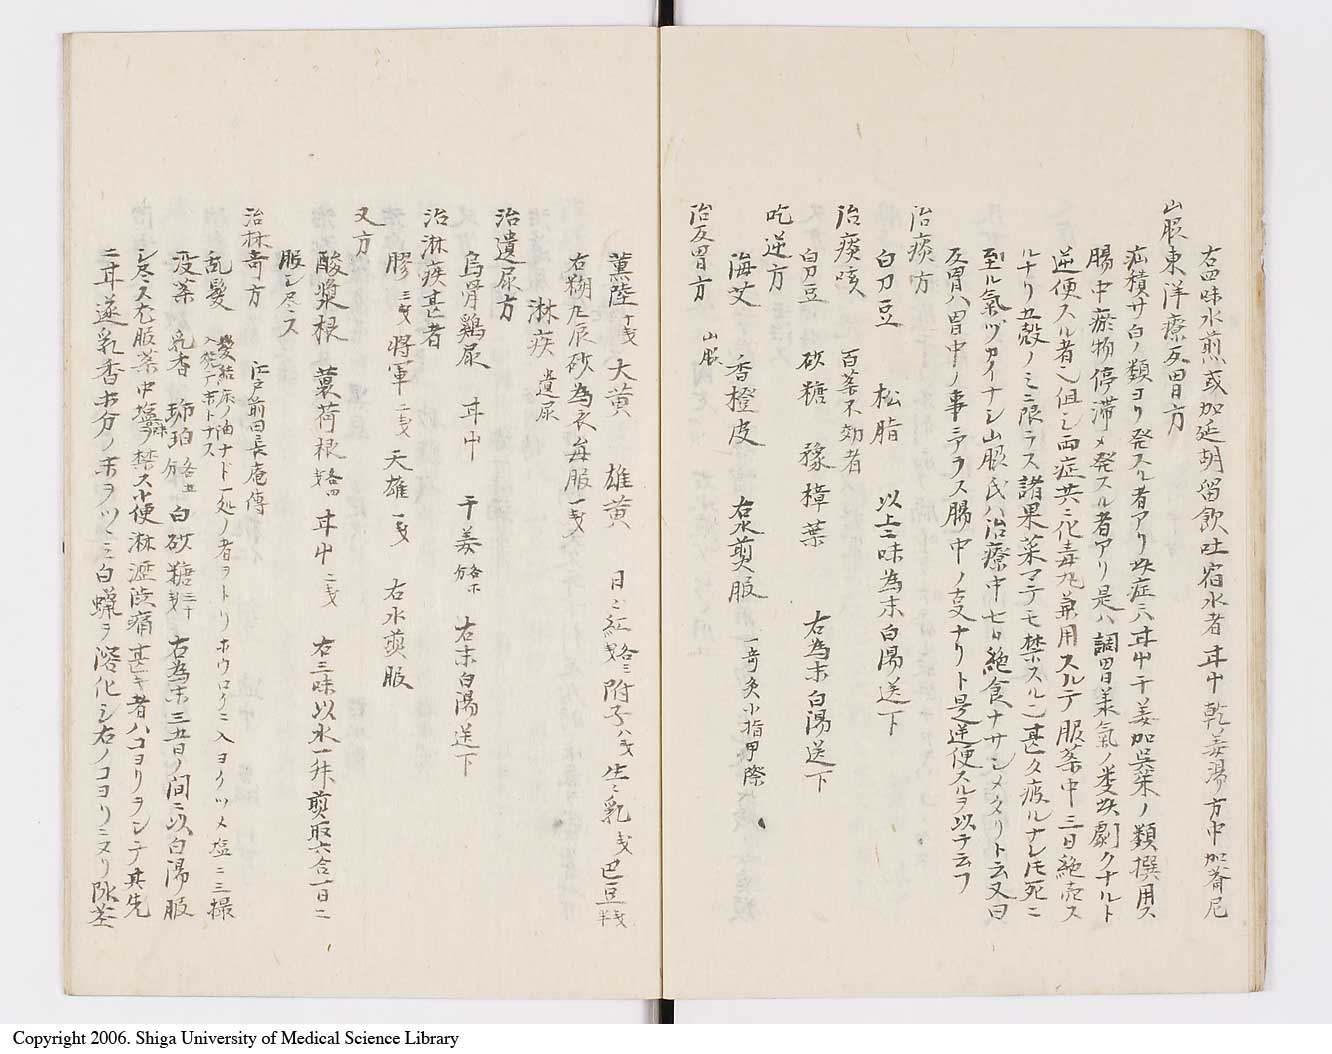 右四味水煎或加延胡留飲吐宿水者甘中乾姜湯方中加莕尼
山脇東洋療反胃方
疝積サ白ノ類ヨリ発スル者アリ此症ニハ甘中干姜加呉茱ノ類撰用ス
腸中瘀物停滞メ発スル者アリ是ハ調胃承氣ノ类此劇クナルト
逆便スル者也但シ両症共ニ化毒丸兼用スルテ服薬中三日絶売ス
ルナリ五穀ノミニ限ラス諸果菜マテモ禁スル也甚タ疲ルナレ𪜈死ニ
至ル氣ヅカイナシ山脇氏ハ治療中七日絶食ナサシメタリト云又曰
反胃ハ胃中ノ事ニアラス腸中ノ支ナリト是逆便スルヲ以テ云フ
治痰方
白刀豆 松脂 以上二味為末白湯送下
治痰咳 百薬不効者
白刀豆 砂糖 豫樟葉 右為末白湯送下
吃逆方
海艾 香橙皮 右水煎服 一奇灸小指甲際
治反胃方 山脇
薫陸 丁戋 大黄 雄黄 日々紅 各三戋 附子 八戋 生々乳 戋 巴豆 半戋
右糊丸辰砂為衣毎服一戋
淋疾 遺尿
治遺尿方
烏骨鷄屎 甘中 干姜 各等分 右末白湯送下
治淋疾甚者
膠 三戋 将軍 二戋 天雄 一戋 右水煎服
又方
酸漿根 蘘荷根 各四戋 甘中 二戋 右三味以水一舛煎取六合一日ニ
服シ尽ス
治淋奇方 江戸前田長庵傳
乱髪 髪結床ノ油ナド一処ノ者ヲトリホウロクニ入ヨクツメ塩ニ三撮
入焚テ末トナス
没薬 乳香 琥珀 各五分 白砂糖 三十戋 右為末三五日ノ間ニ以白湯服
シ尽ス尤服薬中塩味ヲ禁ス小便淋瀝渋痛甚キ者ハコヨリヲシテ其先
ニ甘遂乳香等分ノ末ヲツヽミ白蝋ヲ溶化シ右ノコヨリニヌリ陰茎
Copyright 2006. Shiga University of Medical Science Library